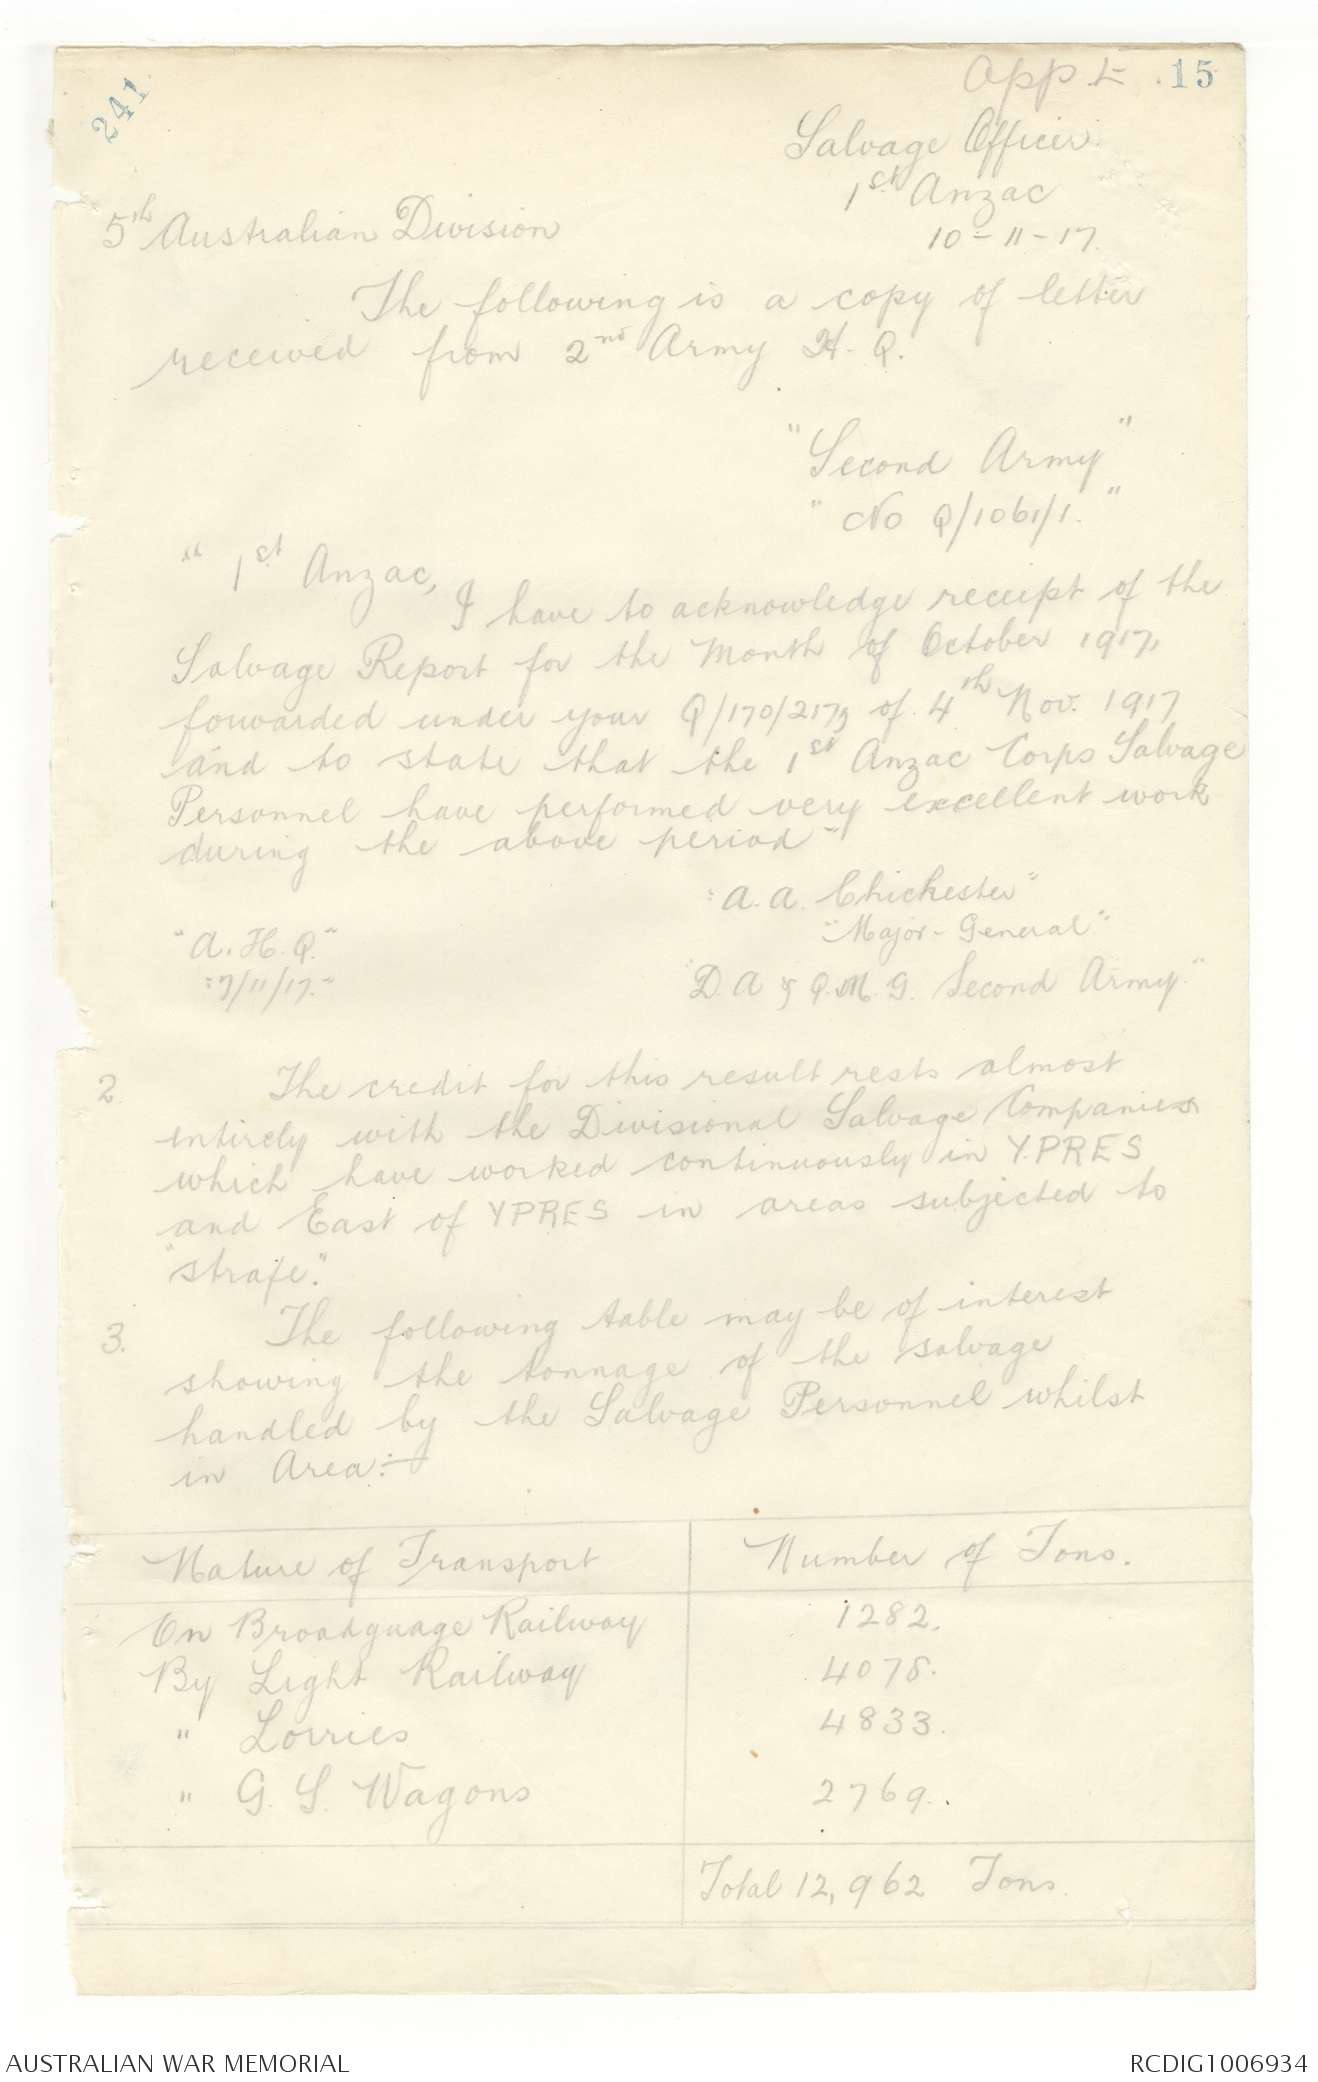 241
App. L 15
Salvage Officer
1st Anzac
10-11-17.
5th Australian Division
The following is a copy of letter
received from 2nd Army H.Q.
"Second Army"
"No Q/1061/1."
"1st Anzac,
I have to acknowledge receipt of the
Salvage Report for the Month of October 1917,
forwarded under your Q/170/2173 of 4th Nov. 1917
and to state that the 1st Anzac Corps Salvage
Personnel have performed very excellent work
during the above period"
"A.A. Chichester"
"Major-General"
"A.H.Q."
"7/11/17."
"D.A & Q.M.G. Second Army."
2. The credit for this result rests almost
entirely with the Divisional Salvage Companies
which have worked continuously in YPRES
and East of YPRES in areas subjected to
"strafe".
3. The following table may be of interest
showing the tonnage of the salvage
handled by the Salvage Personnel whilst
in Area:-
Nature of Transport Number of Tons.
On Broadguage Railway 1282.
By Light Railway 4078.
" Lorries 4833.
" G.S. Wagons 2769.
Total 12,962 Tons.
AUSTRALIAN WAR MEMORIAL RCDIG1006934